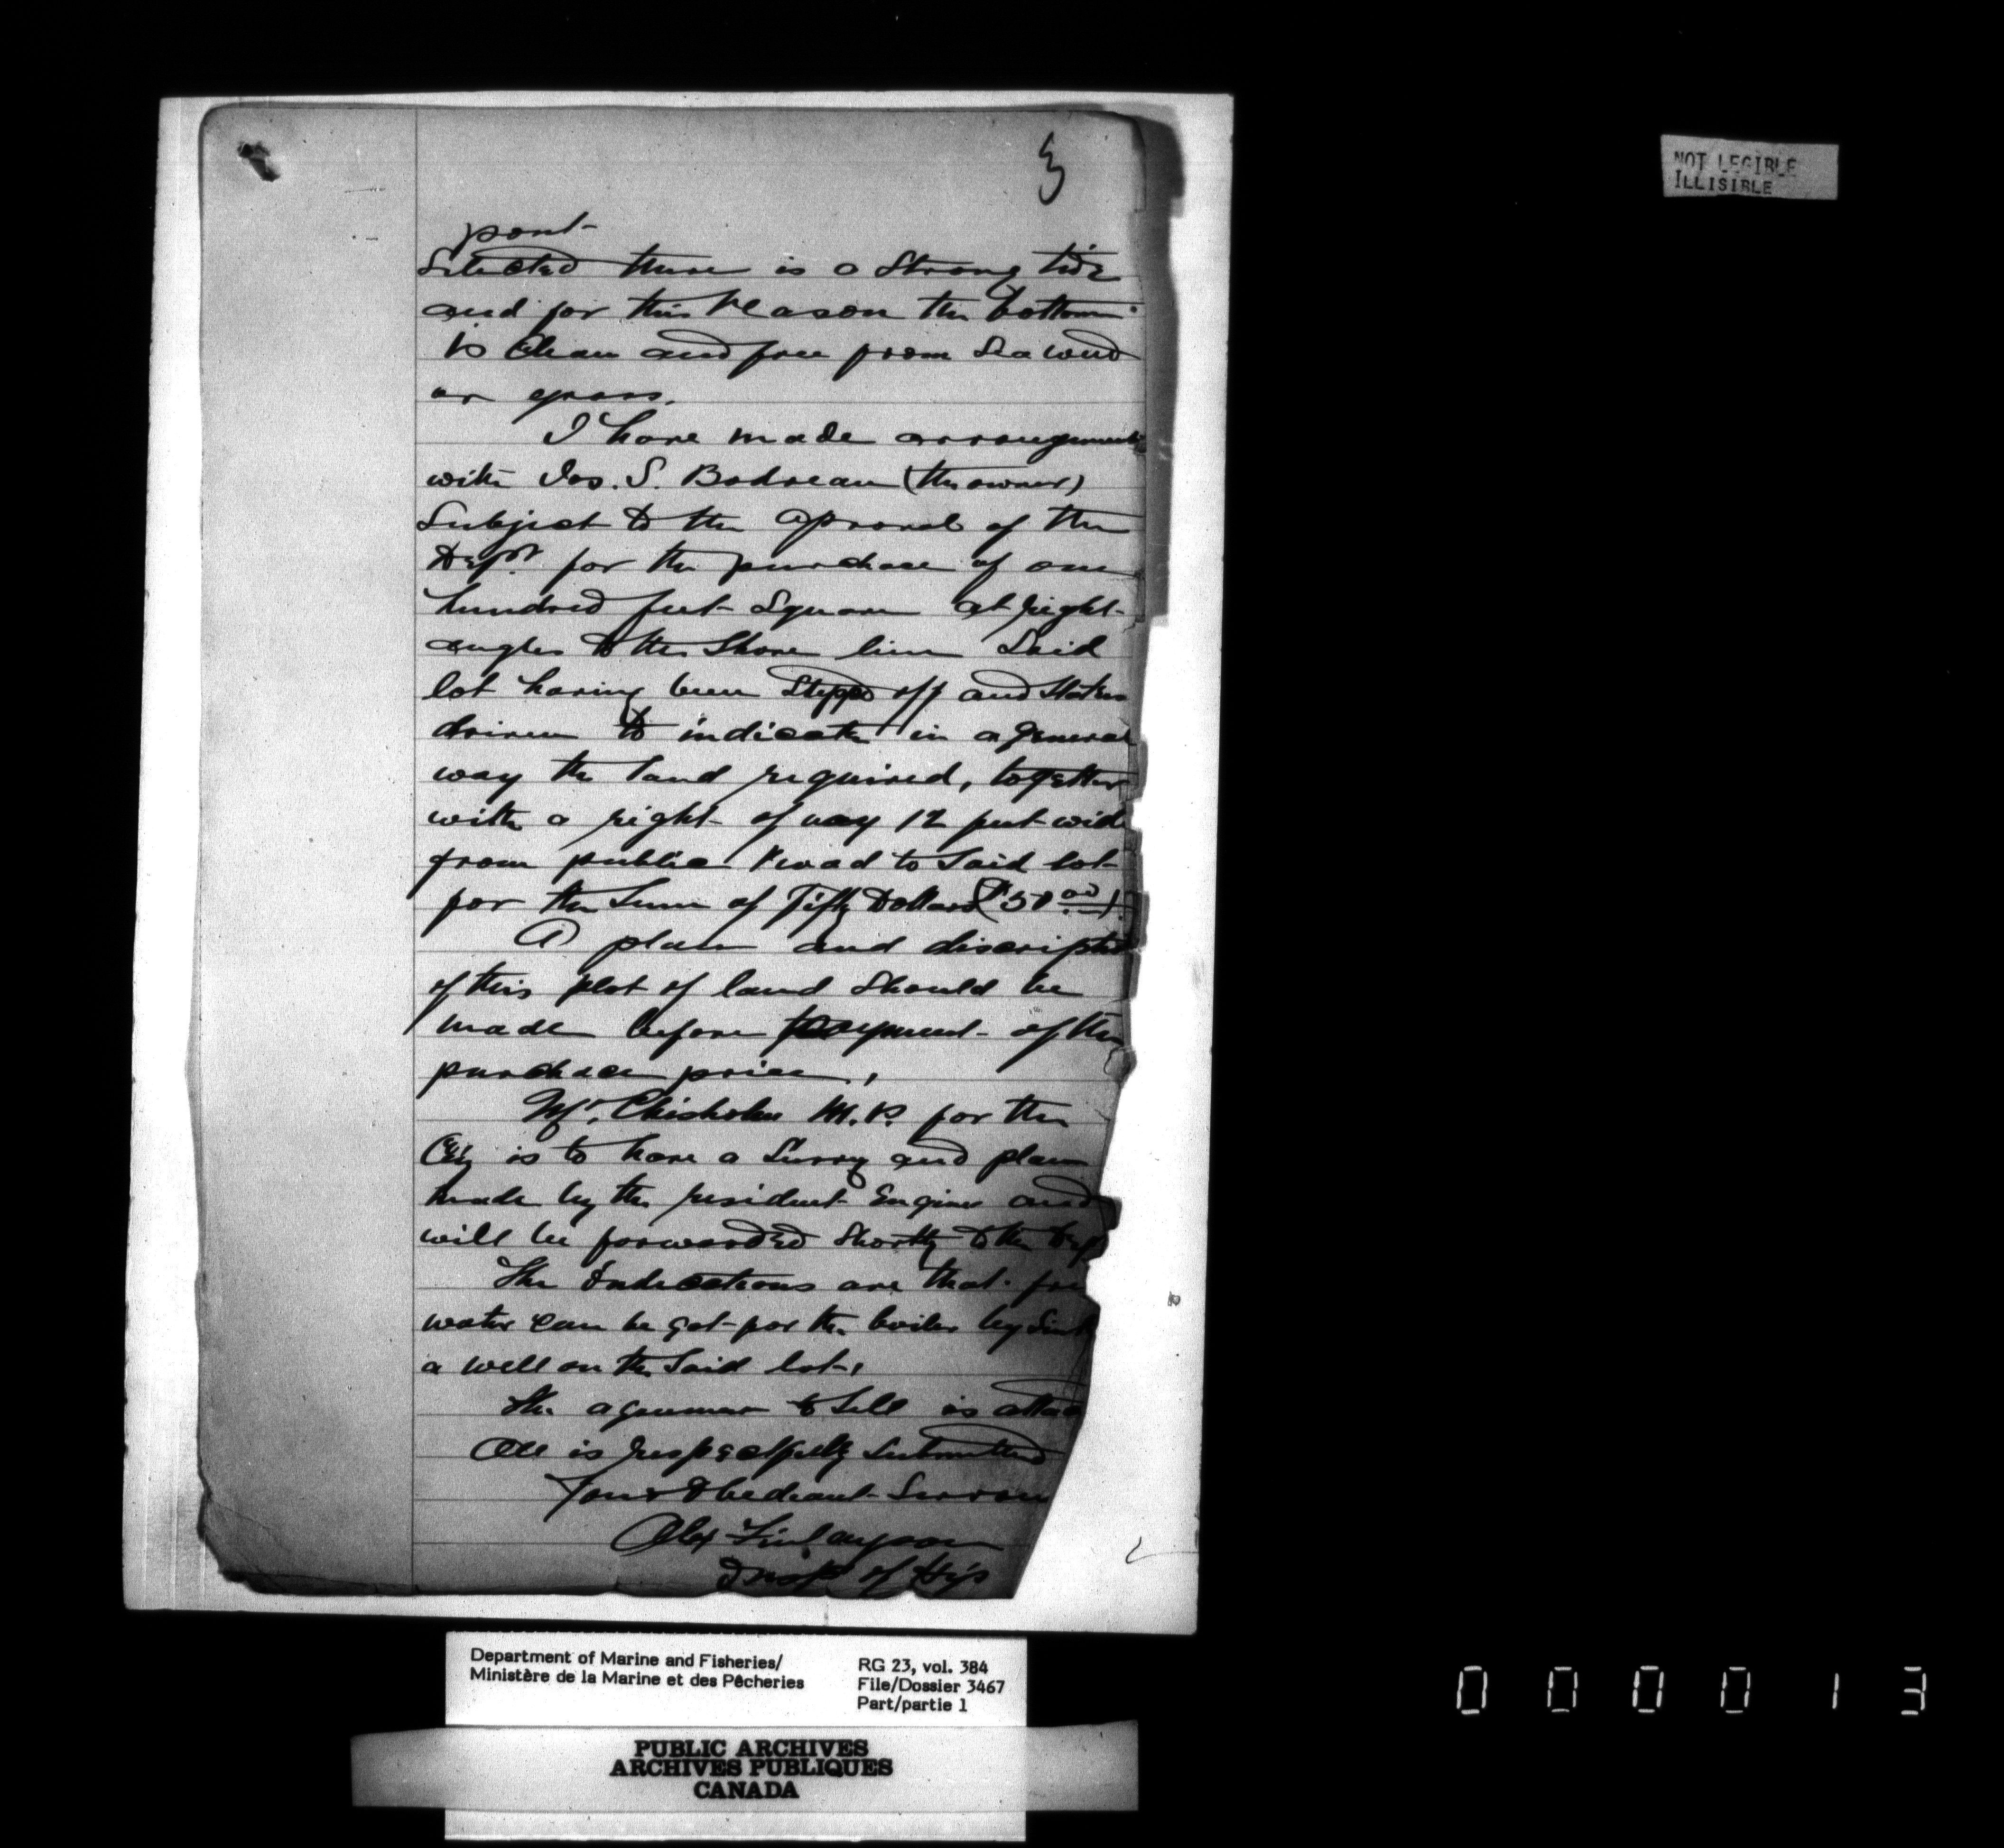 3
NOT LEGIBLE
ILLISIBLE
point
Selected there is a Strong tide
and for this Reason the bottom
is Clean and free from Sea weed
or grass.
I have made arrangements
with Jos. S. Bodreau (the owner)
Subject to the aproval of the
Dept for the purchase of one
hundred feet Square at right
angles to the Shore line Said
lot having been Stepped off and Stakes
driven to indicate in a general
way the land required, together
with a right of way 12 feet wide
from public Road to Said lot
for the Sum of Fifty Dollars ($50.00).
A plan and discription
of this plot of land Should be
made before payment of the
purchase price.
Mr. Chisholm M.P. for the
Co'y is to have a Survey and plan
made by the resident Enginer and
will be forwarded Shortly to the Dept
The Indications are that
water can be got for the boiler by Sink
a well on the Said lot.
The to Sell is attac
All is respectfully Submitted
Your Obedient Servan
Alex Finlayson
Insp of H'y's
Department of Marine and Fisheries/
Ministère de la Marine et des Pêcheries
RG 23, vol. 384
File/Dossier 3467
Part/partie 1
PUBLIC ARCHIVES
ARCHIVES PUBLIQUES
CANADA
000013